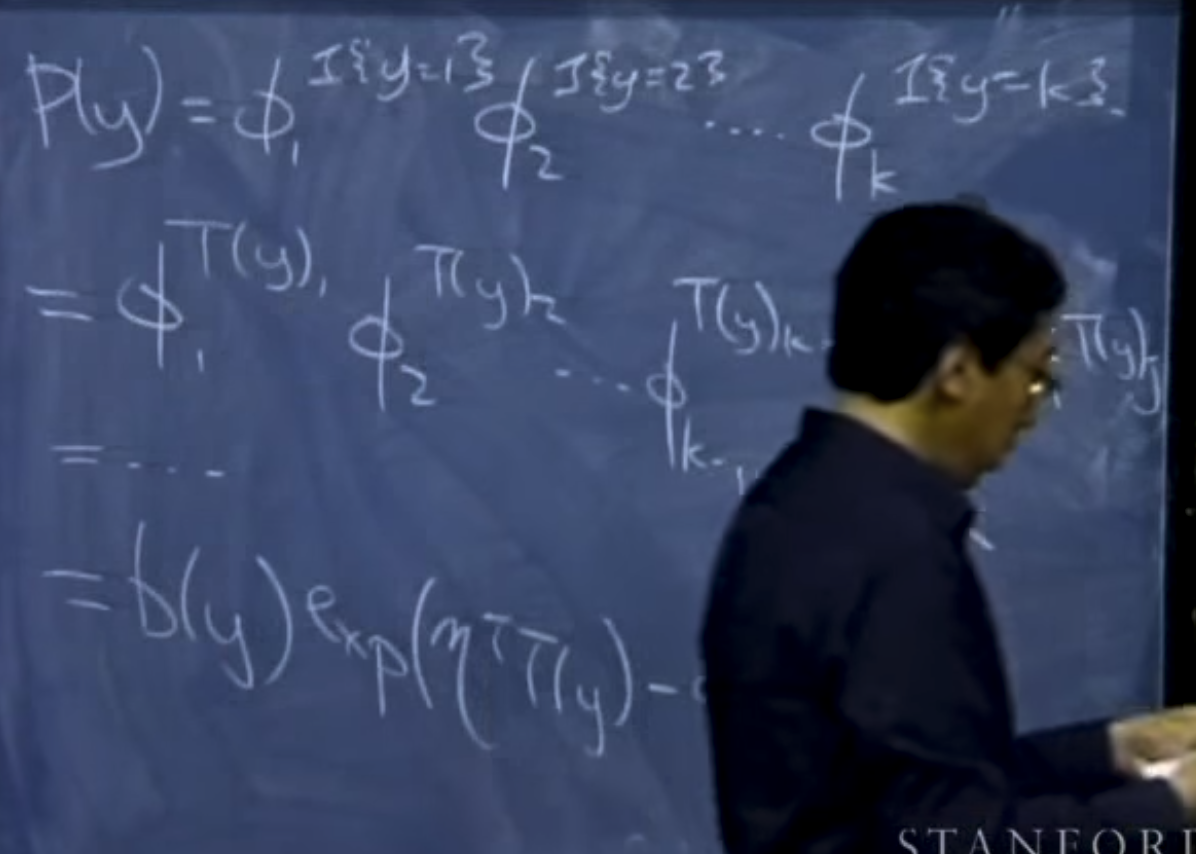 P(y) = ϕ₁^{1{y=1}} ϕ₂^{1{y=2}} .... ϕₖ^{1{y=k}}
= ϕ₁^{T(y)₁} ϕ₂^{T(y)₂} ... ϕₖ₋₁^{T(y)ₖ} T(y)ⱼ
= ....
= b(y) exp(η^T T(y) -
STANFOR